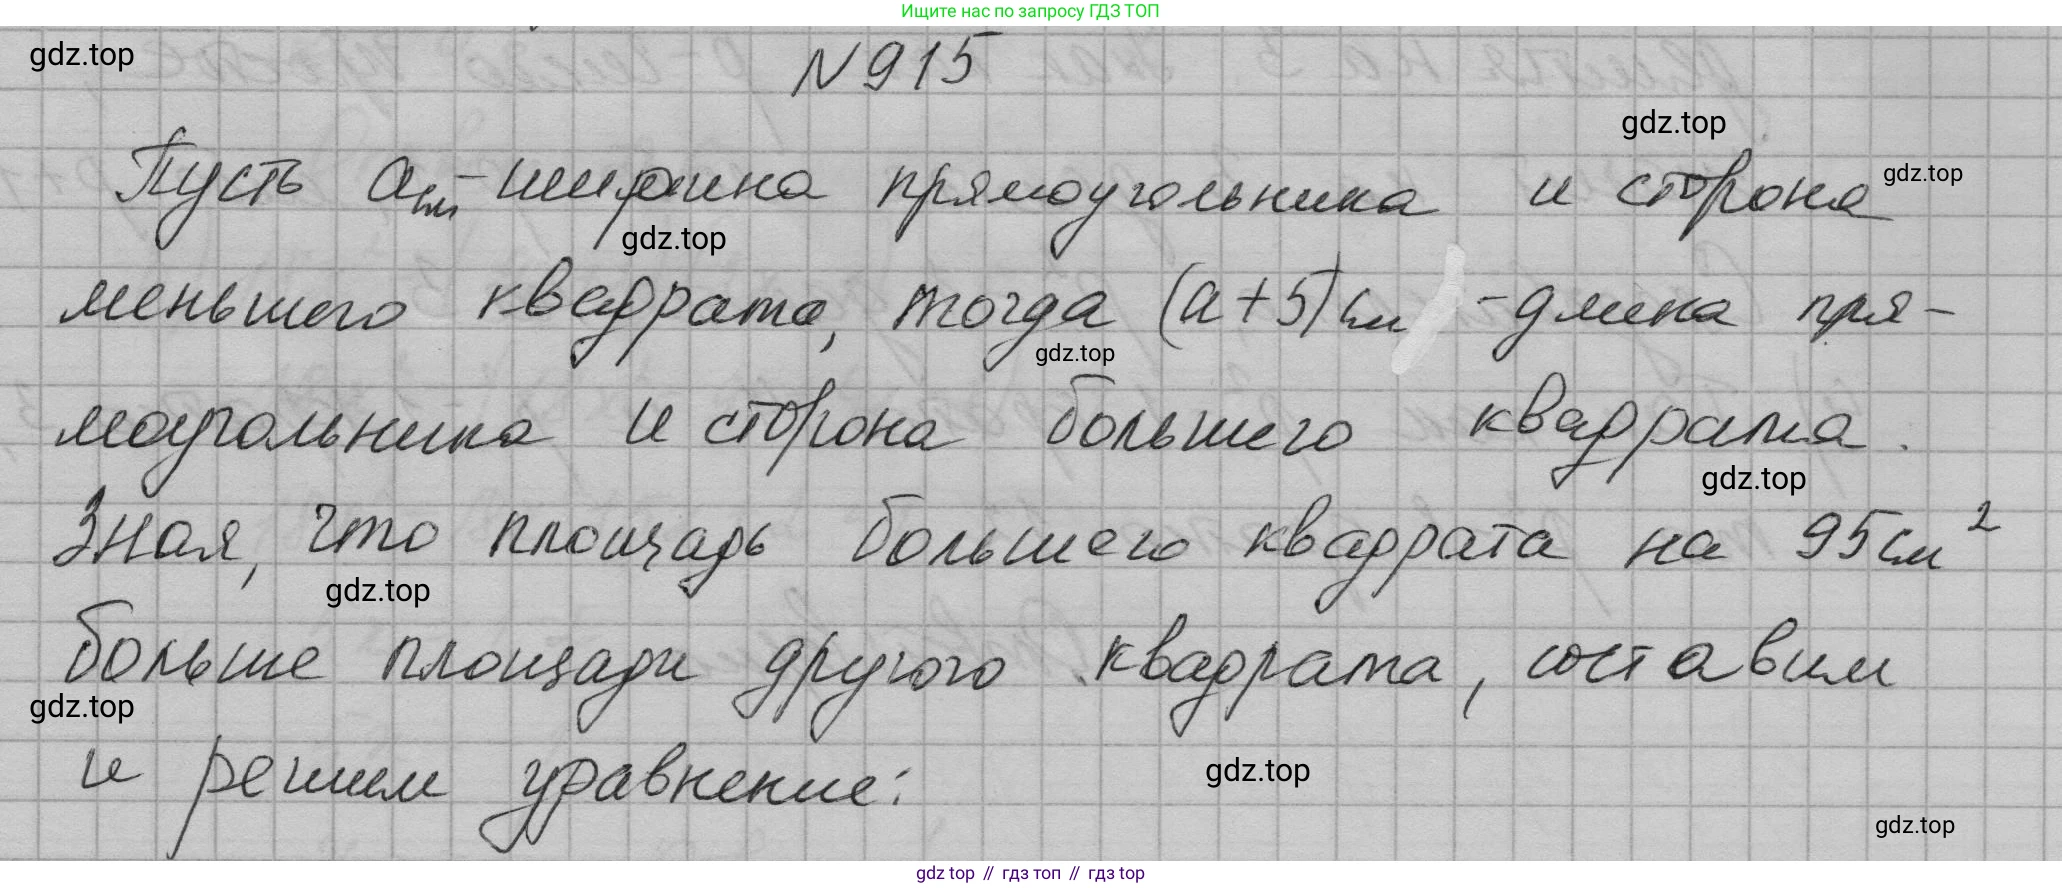 Ищите нас по запросу ГДЗ ТОП
gdz.top
N 915
gdz.top
Пусть a см - ширина прямоугольника и сторона
gdz.top
gdz.top
меньшего квадрата, тогда (a+5) см - длина пря-
gdz.top
моугольника и сторона большего квадрата.
gdz.top
Зная, что площадь большего квадрата на 95 см²
gdz.top
больше площади другого квадрата, составим
gdz.top
и решим уравнение:
gdz.top
gdz.top
gdz top // гдз топ // gdz top